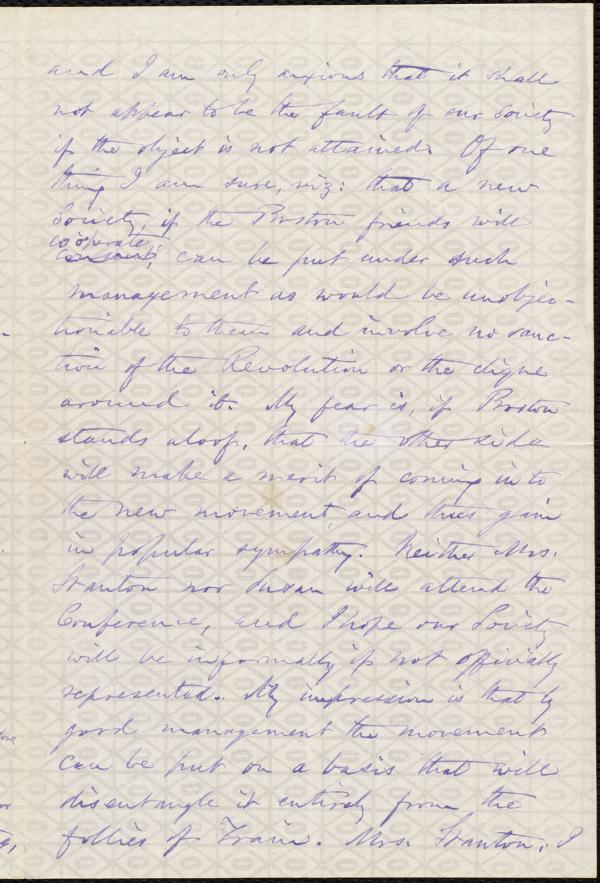 and I am only anxious that it shall
not appear to be the fault of our Society
if the object is not attained. Of one
thing I am sure, viz: that a new
Society, if the Boston friends will
coöperate
consent, can be put under such
management as would be unobjec-
tionable to them and involve no sanc-
tion of the Revolution or the clique
around it. My fear is, if Boston
stands aloof, that the other side
will make a merit of coming in to
the new movement and thus gain
in popular sympathy. Neither Mrs.
Stanton nor Susan will attend the
Conference, and I hope our Society
will be informally if not officially
represented. My impression is that by
good management the movement
can be put on a basis that will
disentangle it entirely from the
follies of Train. Mrs. Stanton, I